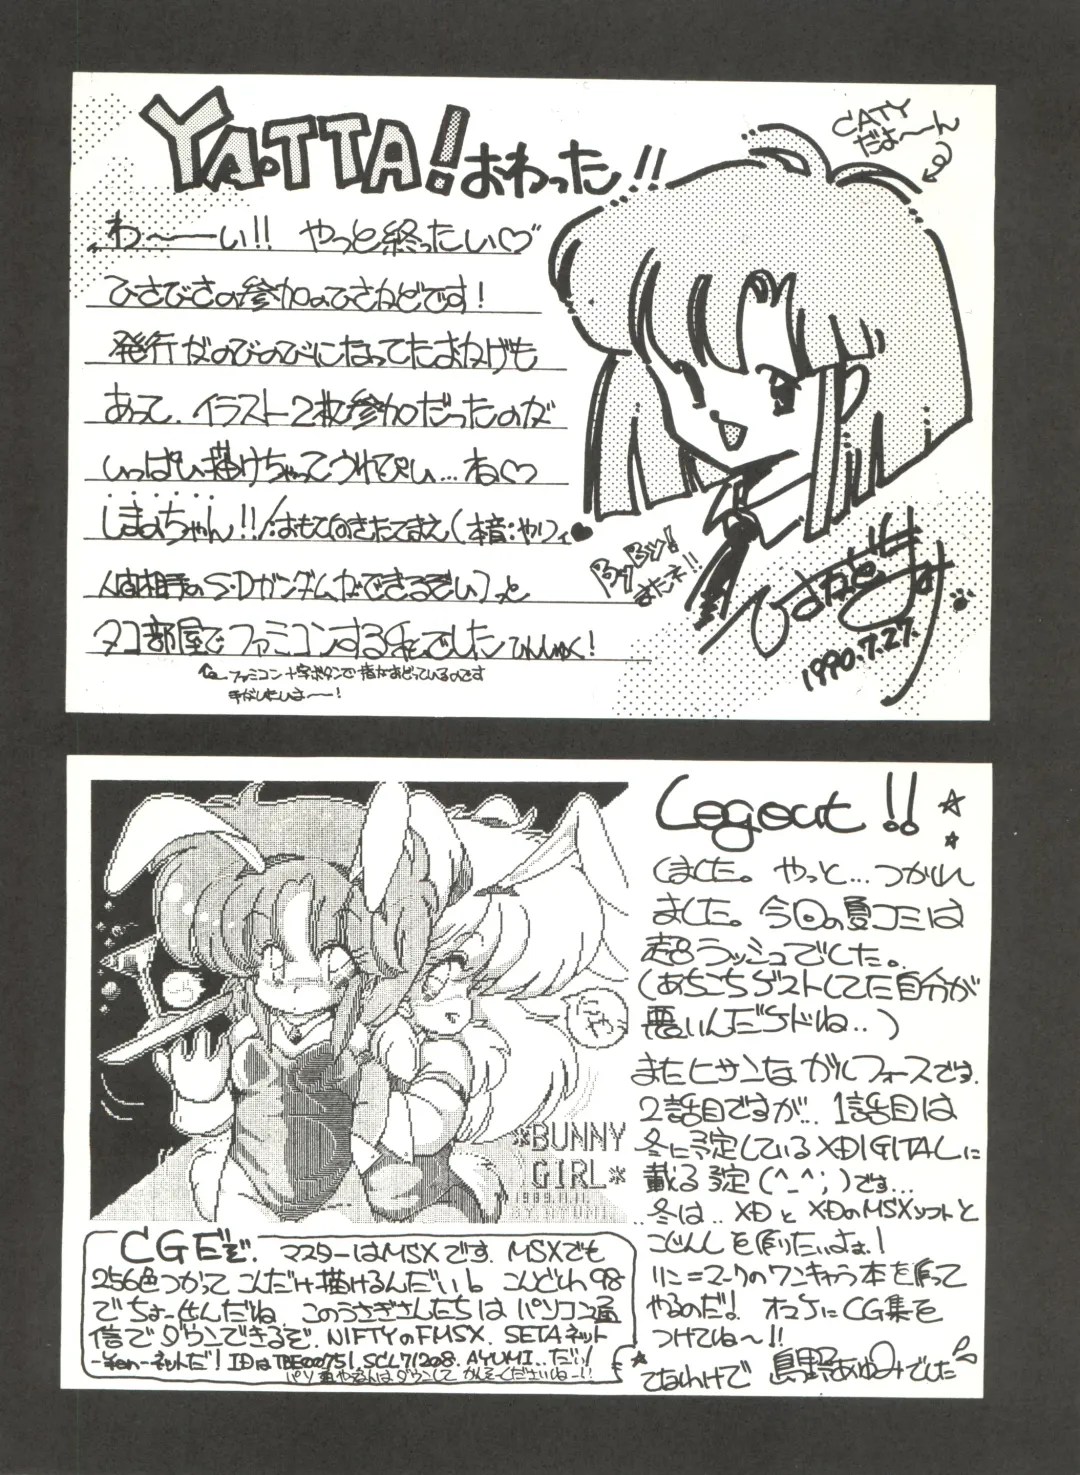 YA.TTA! おわった!!
CATY
だよ〜〜ん
わ〜〜い!! やっと終ったい♡
ひさびさの参加のひさかどです!
発行がのびのびになってたおかげも
あって、イラスト2枚参加だったのが
いっぱい描けちゃってうれぴい…ね♡
しまのちゃん!!
人間相手のS・Dガンダムができるぞい」と
タコ部屋でファミコンする私でした ひんしゅく!
ファミコン十字ボタンで指がおどっているのです
手がいたいよ〜〜!
By By!
またネ!!
1990.7.27.
Logout!!☆☆
しました。やっと…つかれ
ました。今回の夏コミは
超ラッシュでした。
(あちこちゲストしてた自分が
悪いんだケドね..)
またヒサンなガルフォースです.
2話目ですが… 1話目は
冬に予定しているXDIGITALに
載る予定(^_^;)です…
..冬は..XDとXDのMSXソフトと
こじんしを作りたいよぉ!
リン=ミンマークのワンキャラ本を作って
やるのだ! オマケにCG集を
つけてね〜!!
てなわけで 島野あゆみでした
*BUNNY
GIRL*
1989.11.11.
BY AYUMI
CGだぞ. マスターはMSXです. MSXでも
256色つかって こんだけ描けるんだい! こんどわ98
でちょーせんだね このうさぎさんたちは パソコン通
信でダウンできるぞ. NIFTYのFMSX. SETAネット
-ネットだ! IDはTBE00751. SCL71208. AYUMI..だい!